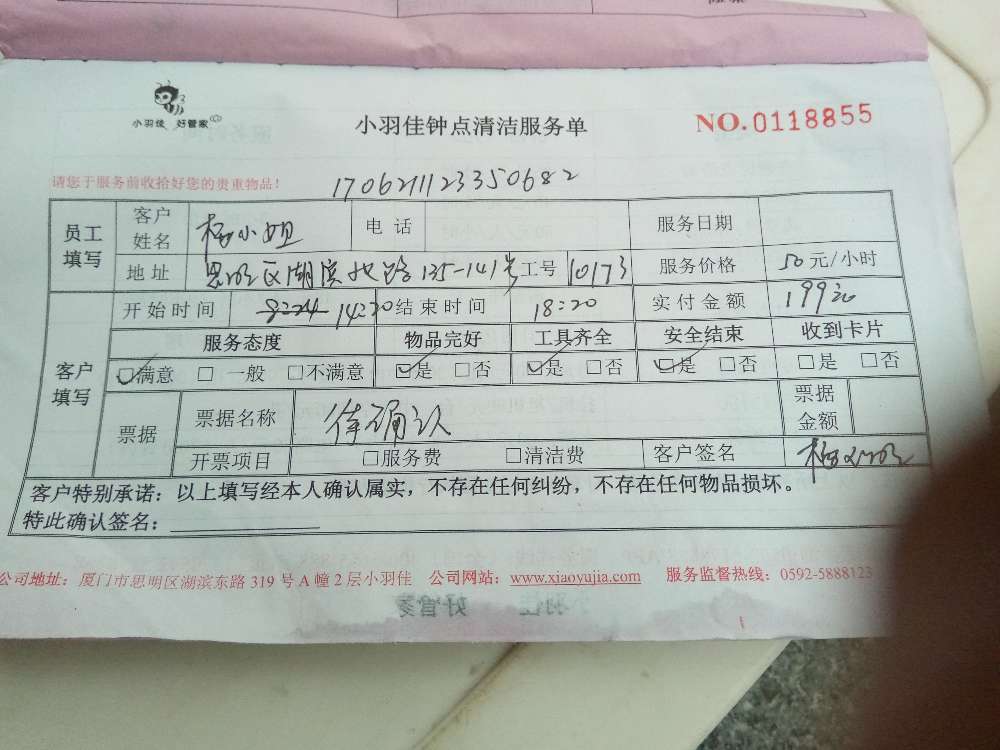 小羽佳 好管家
小羽佳钟点清洁服务单
NO.0118855
请您于服务前收拾好您的贵重物品！
1706211123350682
员工填写 客户姓名 杨小姐 电话 服务日期
地址 思明区湖滨北路135-141号 工号 10173 服务价格 50元/小时
客户填写 开始时间 14:20 结束时间 18:20 实付金额 199元
服务态度 物品完好 工具齐全 安全结束 收到卡片
☑满意 □一般 □不满意 ☑是 □否 ☑是 □否 ☑是 □否 □是 □否
票据 票据名称 待确认 票据金额
开票项目 □服务费 □清洁费 客户签名
客户特别承诺：以上填写经本人确认属实，不存在任何纠纷，不存在任何物品损坏。
特此确认签名：
公司地址：厦门市思明区湖滨东路 319 号 A 幢 2 层小羽佳 公司网站：www.xiaoyujia.com 服务监督热线：0592-5888123